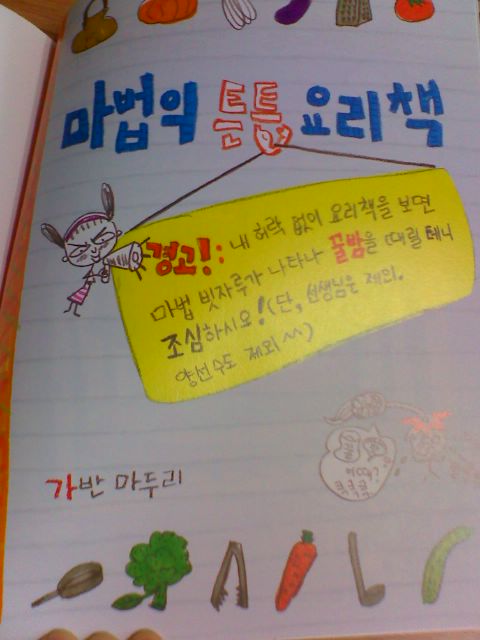 마법의 튼튼 요리책
경고!: 내 허락 없이 요리책을 보면
마법 빗자루가 나타나 꿀밤을 때릴 테니
조심하시오! (단, 선생님은 제외.
양선수도 제외 ^^)
가반 마두리